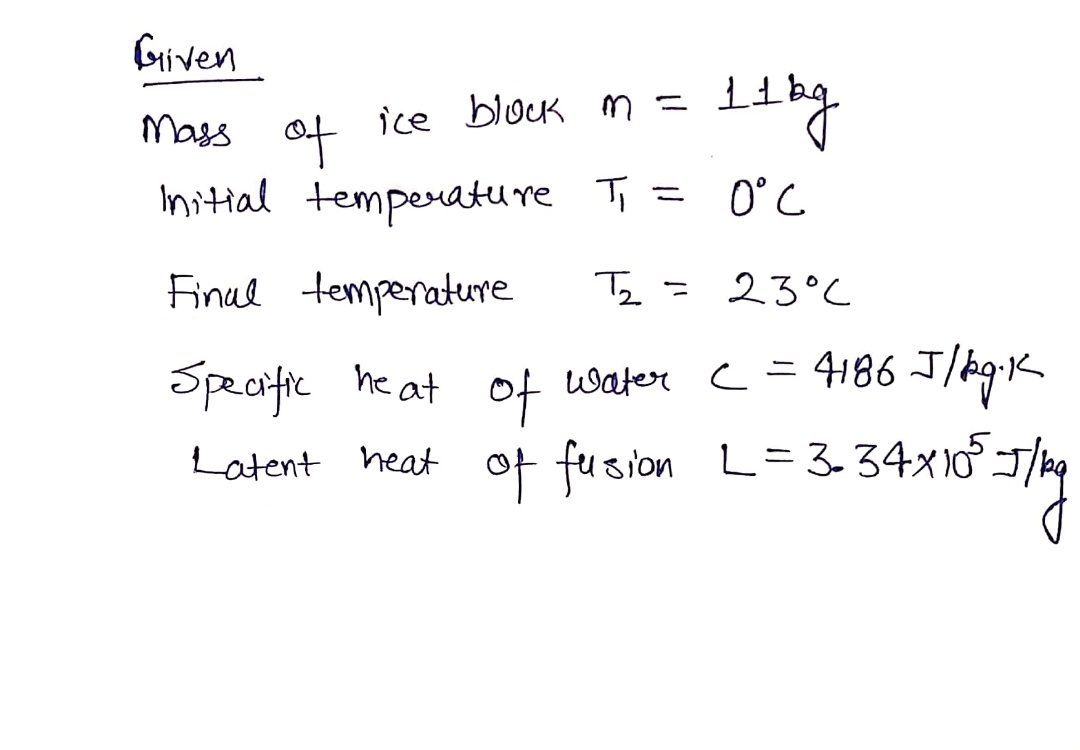 Given
Mass of ice block m = 11kg
Initial temperature T₁ = 0°C
Final temperature T₂ = 23°C
Specific heat of water C = 4186 J/kg·K
Latent heat of fusion L = 3.34×10⁵ J/kg